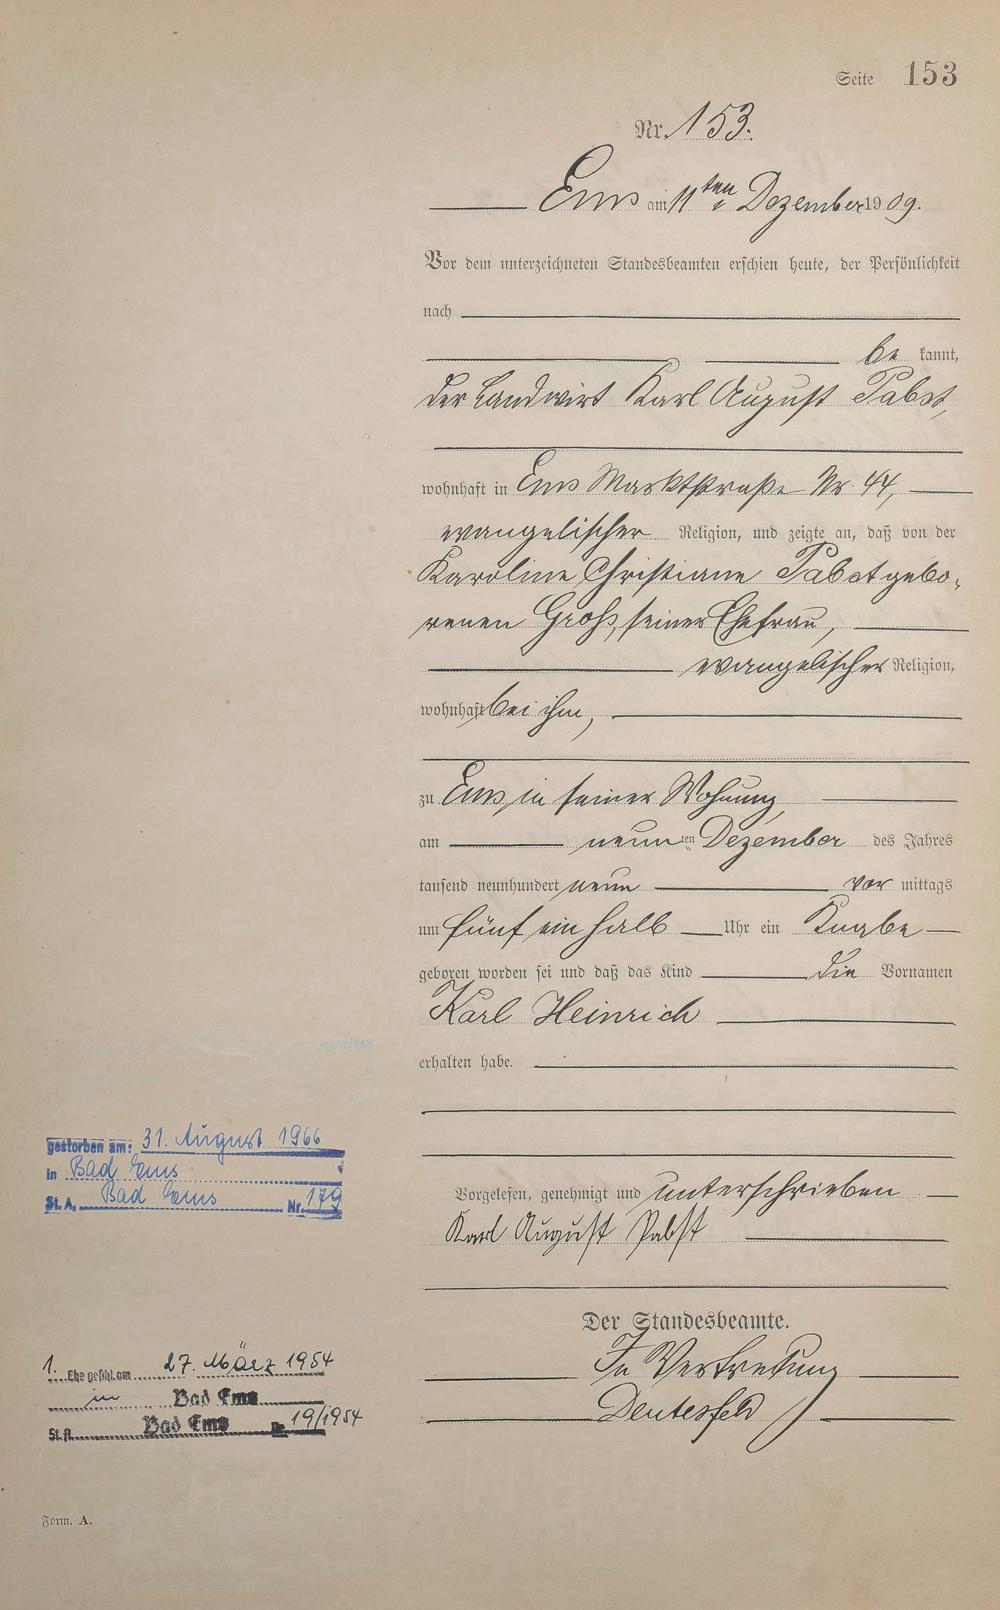 Seite 153
Nr. 153.
Ems am 11ten Dezember 1909.
Vor dem unterzeichneten Standesbeamten erschien heute, der Persönlichkeit
nach
be kannt,
der Landwirt Karl August Pabst,
wohnhaft in Ems Marktstraße Nr. 44,
evangelischer Religion, und zeigte an, daß von der
Karoline Christiane Pabst gebo-
renen Groß, seiner Ehefrau,
evangelischer Religion,
wohnhaft bei ihm,
zu Ems, in seiner Wohnung,
am neunten Dezember des Jahres
tausend neunhundert neun vor mittags
um fünf ein halb Uhr ein Knabe
geboren worden sei und daß das Kind die Vornamen
Karl Heinrich
erhalten habe.
gestorben am: 31. August 1966
in Bad Ems
St. A. Bad Ems Nr. 179
Vorgelesen, genehmigt und unterschrieben
Karl August Pabst
Der Standesbeamte.
In Vertretung
1. Ehe geschl. am 27. März 1954
in Bad Ems
St. A. Bad Ems Nr. 19/1954
Form. A.